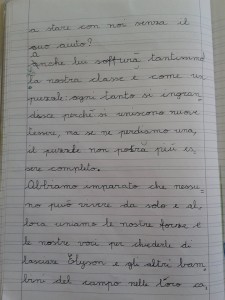 a stare con noi senza il
suo aiuto?
Anche lui soffrirà tantissimo
la nostra classe è come un
puzzle: ogni tanto si ingran
disce perché si uniscono nuove
tessere, ma se ne perdiamo una,
il puzzle non potrà più es
sere completo.
Abbiamo imparato che nessu
no può vivere da solo e al,
lora uniamo le nostre forze e
le nostre voci per chiederle di
lasciare Elyson e gli altri bam
bini del campo nelle loro ca,